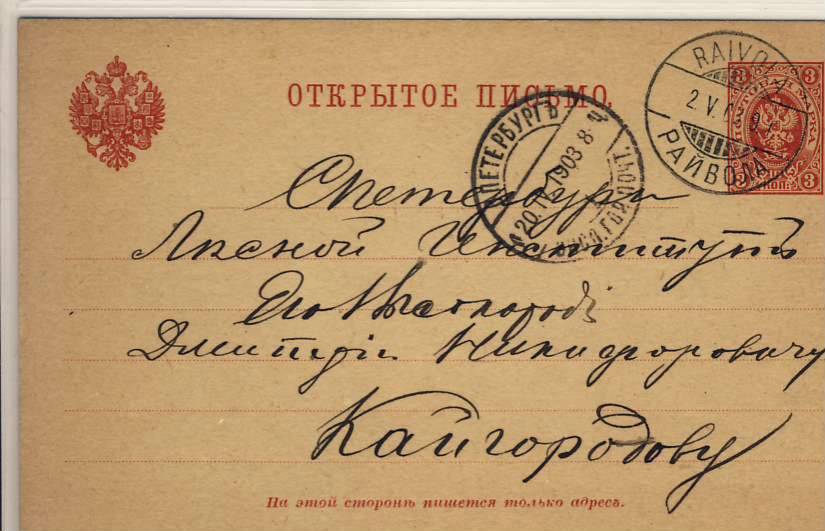 ОТКРЫТОЕ ПИСЬМО.
RAIVOLA
2.V.
РАЙВОЛА
3 3
3 КОП. 3
ПЕТЕРБУРГЪ
20.IV.1903 8 Ч
ПОЧТ.
Спетербургъ
Лѣсной Институтъ
Его Высокородiю
Дмитрiю Никифоровичу
Кайгородову
На этой сторонѣ пишется только адресъ.